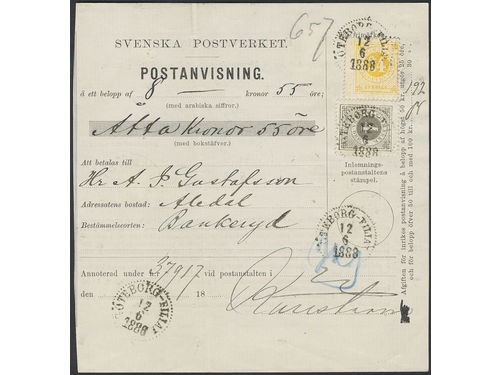 657
SVENSKA POSTVERKET.
POSTANVISNING.
å ett belopp af 8 kronor 55 öre;
(med arabiska siffror.)
Åtta Kronor 55 öre
(med bokstäfver.)
Att betalas till
Hr A. J. Gustafsson
Adressatens bostad: Aledal
Bestämmelseorten: Bankeryd
Annoterad under 37917 vid postanstalten i
den 18
Inlemnings-
postanstaltens
stämpel.
GÖTEBORG-FILIAL
12
6
1888
GÖTEBORG-FILIAL
12
6
1888
GÖTEBORG-FILIAL
12
6
1888
GÖTEBORG-FILIAL
12
6
1888
24
Afgiften för inrikes postanvisning å belopp af högst 50 kr. utgör 25 öre,
och för belopp öfver 50 till och med 100 kr. 30